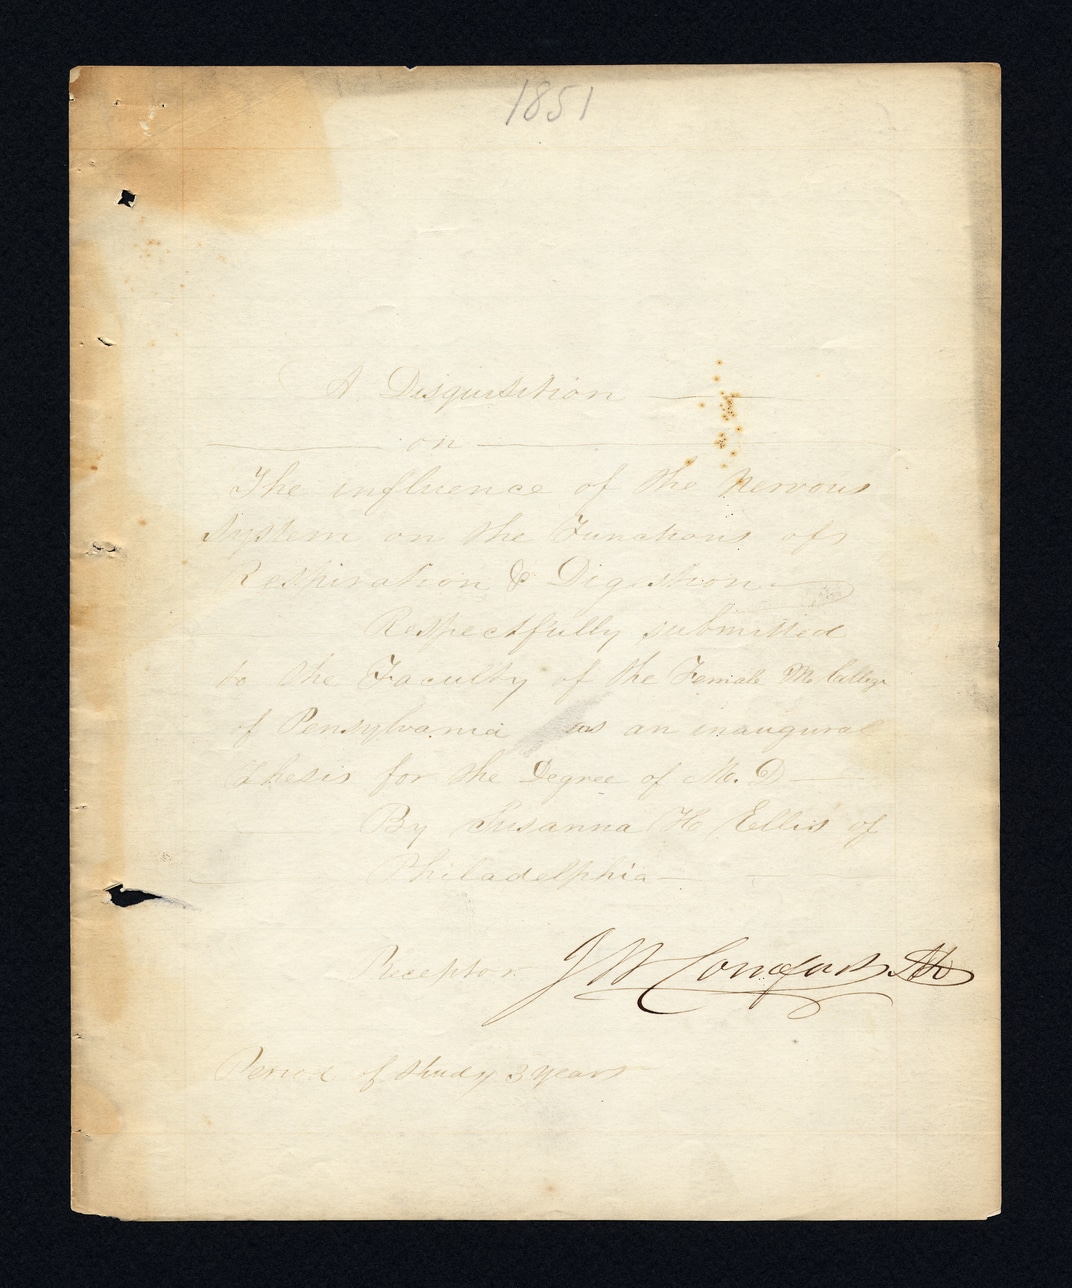 1851
A Disquisition
on
The influence of the Nervous
System on the Functions of
Respiration & Digestion
Respectfully submitted
to the Faculty of the Female M. College
of Pensylvania as an inaugural
thesis for the Degree of M. D.
By Susanna H Ellis of
Philadelphia
Preceptor J W Comfort MD
Period of study 3 years